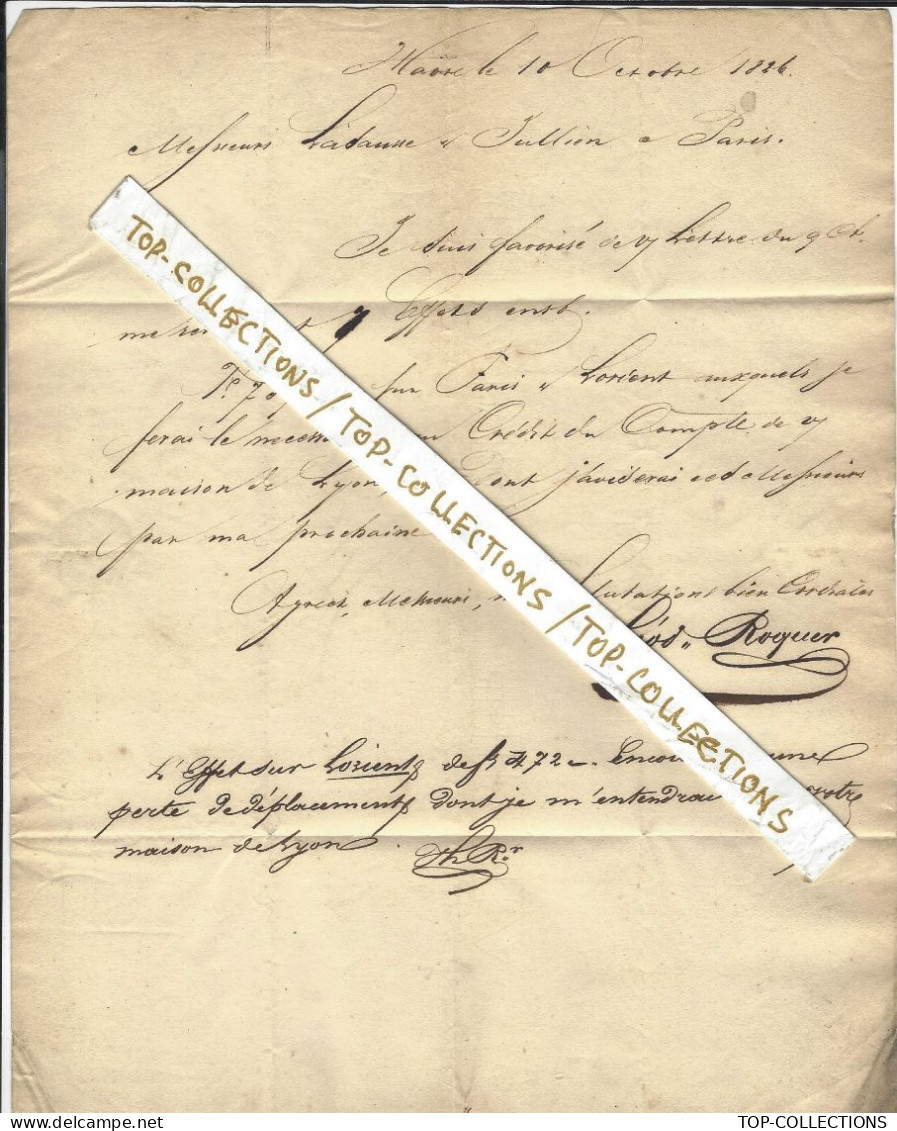 Havre le 10 Octobre 1826.
Messieurs Ladausse & Jullien a Paris.
Je suis favorisé de v/ Lettre du 9 Ct.
me 7 Effets ensb.
sur Paris & Lorient auxquels je
ferai le Crédit du Compte de v/
maison de Lyon, j'aviserai ces Messieurs
par ma prochaine
Agréez, Messieurs, bien Cordiales
Roquer
L'Effet sur Lorient de f 472 - une
perte de déplacement dont je m'entendrai votre
maison de Lyon. Th Rr
TOP-COLLECTIONS / TOP-COLLECTIONS / TOP-COLLECTIONS
TOP-COLLECTIONS